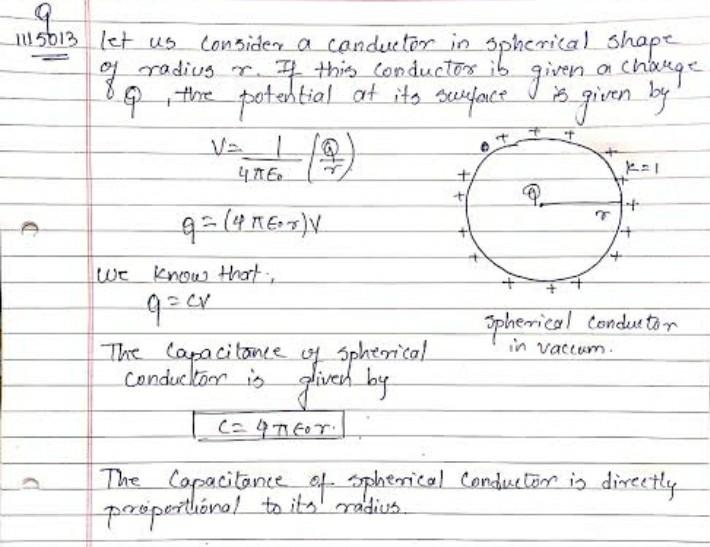 9
1115013 let us consider a conductor in spherical shape
of radius r. If this conductor is given a charge
Q, the potential at its surface is given by
V= 1/4πε₀ (Q/r)
+ + + + + + + + + + + + + +
K=1
Q
r
q=(4πε₀r)V
We know that,
q=CV
Spherical Conductor
in vaccum.
The Capacitance of spherical
Conductor is given by
C=4πε₀r.
The Capacitance of spherical Conductor is directly
proportional to its radius.